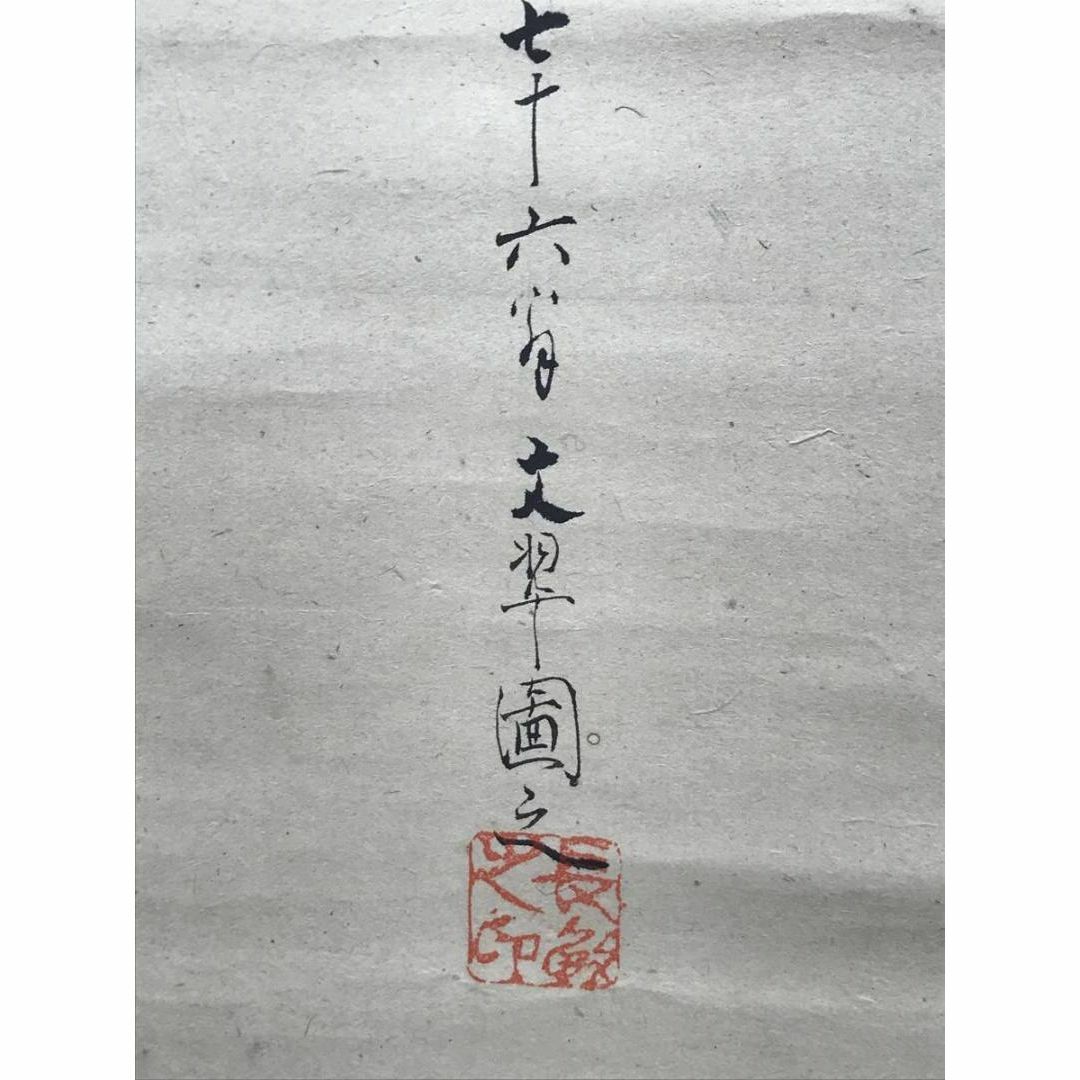 七十六翁 文翠圖之
長之印